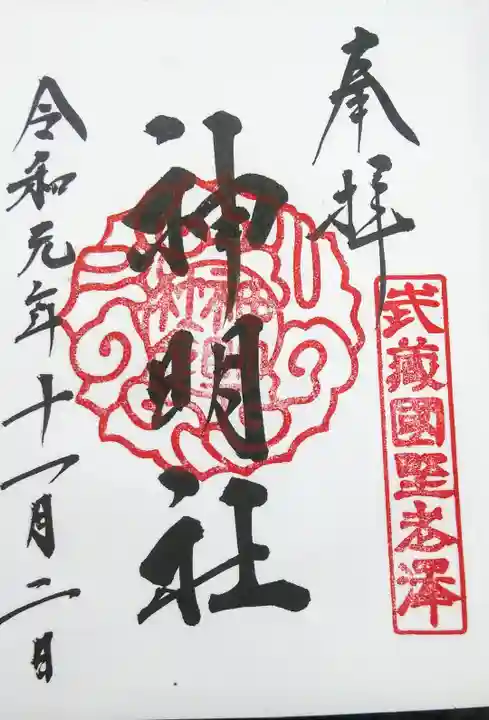 奉拝
武蔵國埜老澤
神明社
令和元年十一月二日